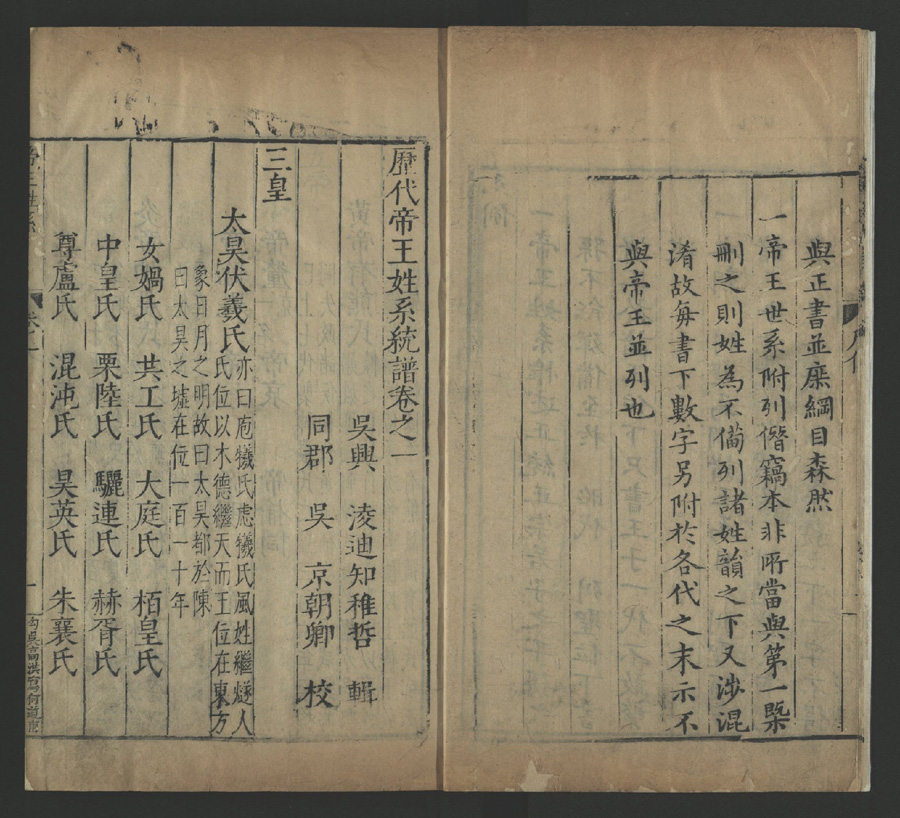 與正書並庶綱目森然
一帝王世系附列僭竊本非所當與第一槩
刪之則姓為不備列諸姓韻之下又涉混
淆故每書下數字另附於各代之末示不
與帝王並列也
歷代帝王姓系統譜卷之一
吳興 淩迪知稚哲 輯
同郡 吳 京朝卿 校
三皇
太昊伏羲氏亦曰庖犧氏虙犧氏風姓繼燧人
氏位以木德繼天而王位在東方
象日月之明故曰太昊都於陳
曰太昊之墟在位一百一十年
女媧氏 共工氏 大庭氏 栢皇氏
中皇氏 栗陸氏 驪連氏 赫胥氏
尊盧氏 混沌氏 昊英氏 朱襄氏
卷之一